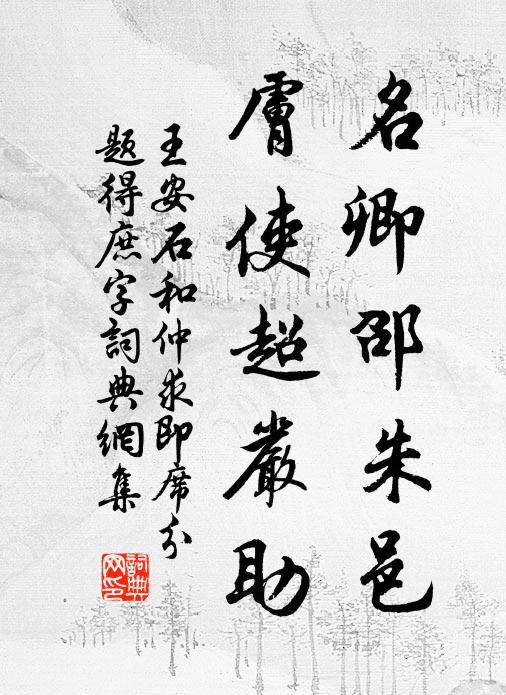 名卿邵朱邑
膚使超嚴助
王安石和仲求即席分
题得庶字詞典網集
詞典
网印